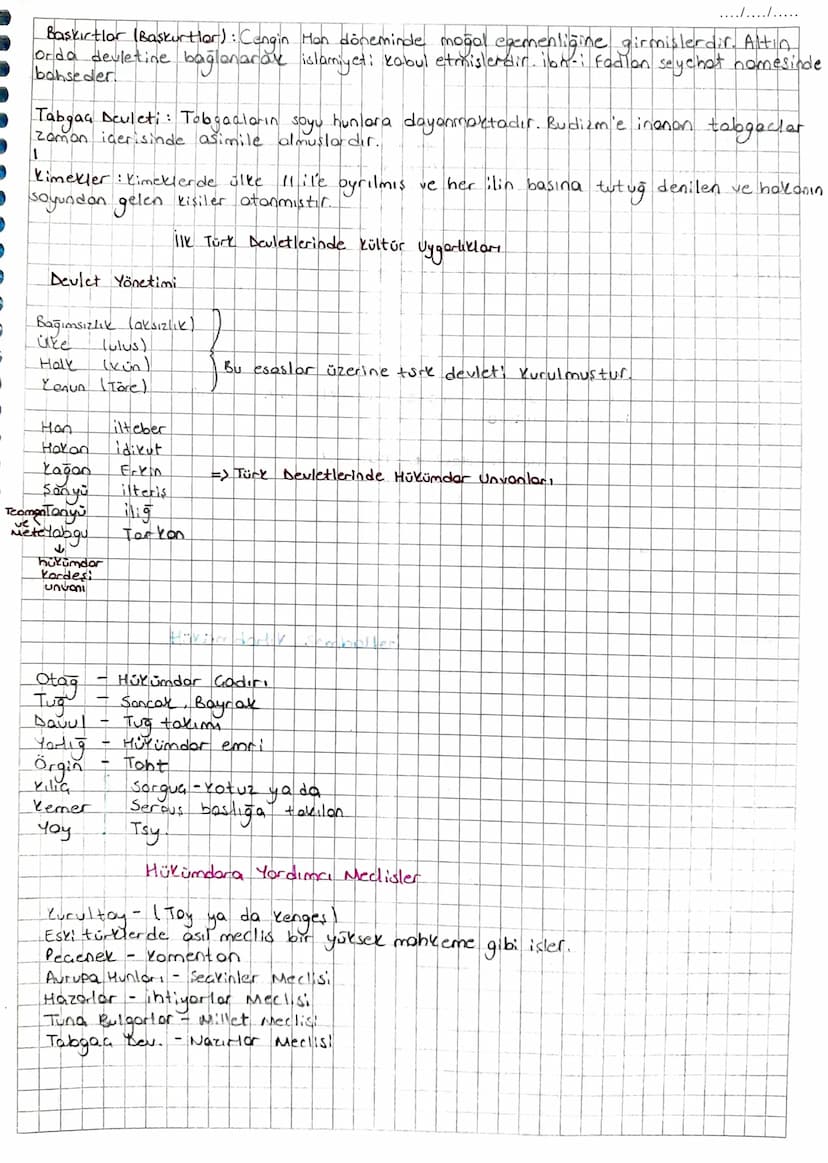 ..../..../.....
Başkırtlar (Başkurtlar) : Cengin Han döneminde moğol egemenliğine girmişlerdir. Altın
orda devletine bağlanarak islamiyeti kabul etmişlerdir. ibn-i Fadlan seychat namesinde
bahseder.
Tabgaç Devleti : Tabgaçların soyu hunlara dayanmaktadır. Budizm'e inanan tabgaçlar
zaman içerisinde asimile olmuşlardır.
Kimekler : Kimeklerde ülke 11 il'e ayrılmış ve her ilin başına tutuğ denilen ve hakanın
soyundan gelen kişiler atanmıştır.
İlk Türk Devletlerinde Kültür Uygarlıkları
Devlet Yönetimi
Bağımsızlık (oksızlık)
Ülke (ulus)
Halk (kün)
Kanun (Töre)
Bu esaslar üzerine türk devleti kurulmuştur.
Han ilteber
Hakan idikut
Kağan Erkin
Şanyü ilteriş
Tanyü iliğ
Yabgu Tarkan
=> Türk Devletlerinde Hükümdar Unvanları
Teoman
ve
Mete
hükümdar
kardeşi
unvanı
Hükümdarlık Sembolleri
Otağ - Hükümdar Çadırı
Tuğ - Sancak, Bayrak
Davul - Tuğ takımı
Yarlığ - Hükümdar emri
Örgin - Taht
Kılıç Sorguç-kotuz ya da
Kemer Serpuş başlığa takılan
Yay Tsy.
Hükümdara Yardımcı Meclisler
Kurultay - (Toy ya da Kengeş)
Eski türklerde asıl meclis bir yüksek mahkeme gibi işler.
Peçenek - Komenton
Avrupa Hunları - Seçkinler Meclisi
Hazarlar - ihtiyarlar Meclisi
Tuna Bulgarlar - Millet Meclisi
Tabgaç Dev. - Nazırlar Meclisi